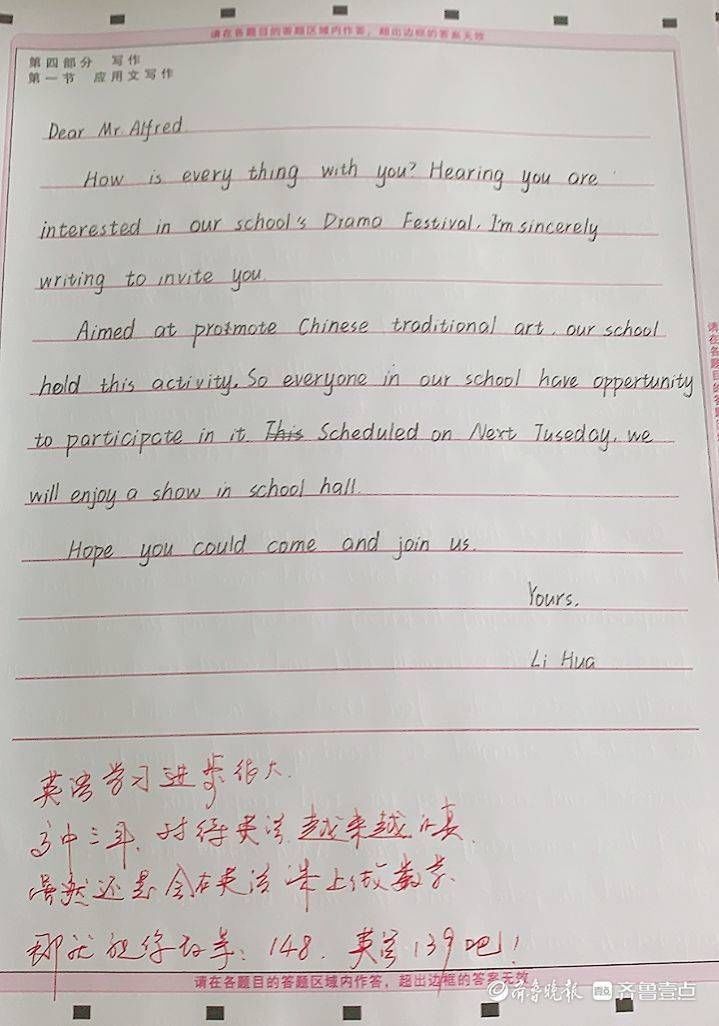 请在各题目的答题区域内作答，超出边框的答案无效
第四部分 写作
第一节 应用文写作
Dear Mr. Alfred.
How is every thing with you? Hearing you are
interested in our school's Drama Festival, I'm sincerely
writing to invite you.
Aimed at protmote Chinese traditional art, our school
hold this activity. So everyone in our school have oppertunity
to participate in it. This Scheduled on Next Tuseday, we
will enjoy a show in school hall.
Hope you could come and join us.
Yours,
Li Hua
英语学习进步很大.
高中三年,对待英语越来越认真,
虽然还是会在英语课上做数学.
那就祝你数学:148,英语139吧!
请在各题目的答题区域内作答，超出边框的答案无效
齐鲁晚报 齐鲁壹点